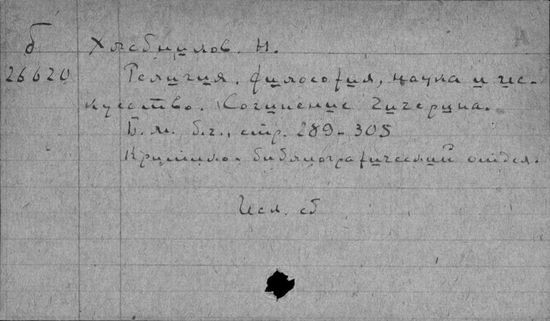 б Хлебников. Н.
26620 Религия, философия, наука и ис-
кусство. Сочинение Чичерина.
Б.м. б.г., стр. 289-305
Критико-библиографический отдел.
Исл. сб